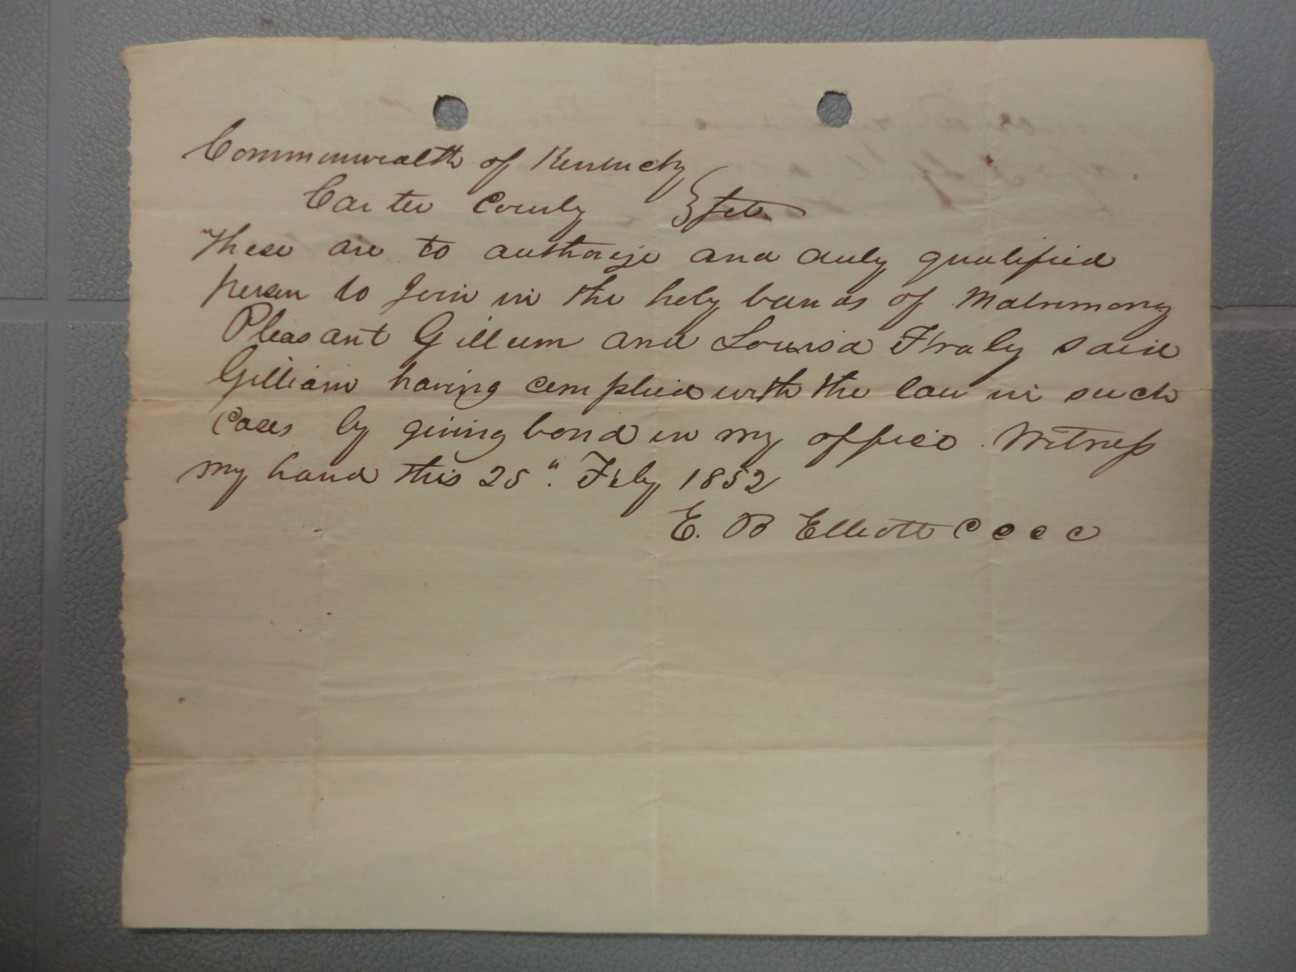 Commonwealth of Kentucky
Carter County } Sct.
These are to authorize and duly qualified
person to Join in the holy bands of Matrimony
Pleasant Gillum and Louisa Fraly said
Gilliam having complied with the law in such
Cases by giving bond in my office. Witness
my hand this 25". Feby 1852
E. B Elliott C C C C